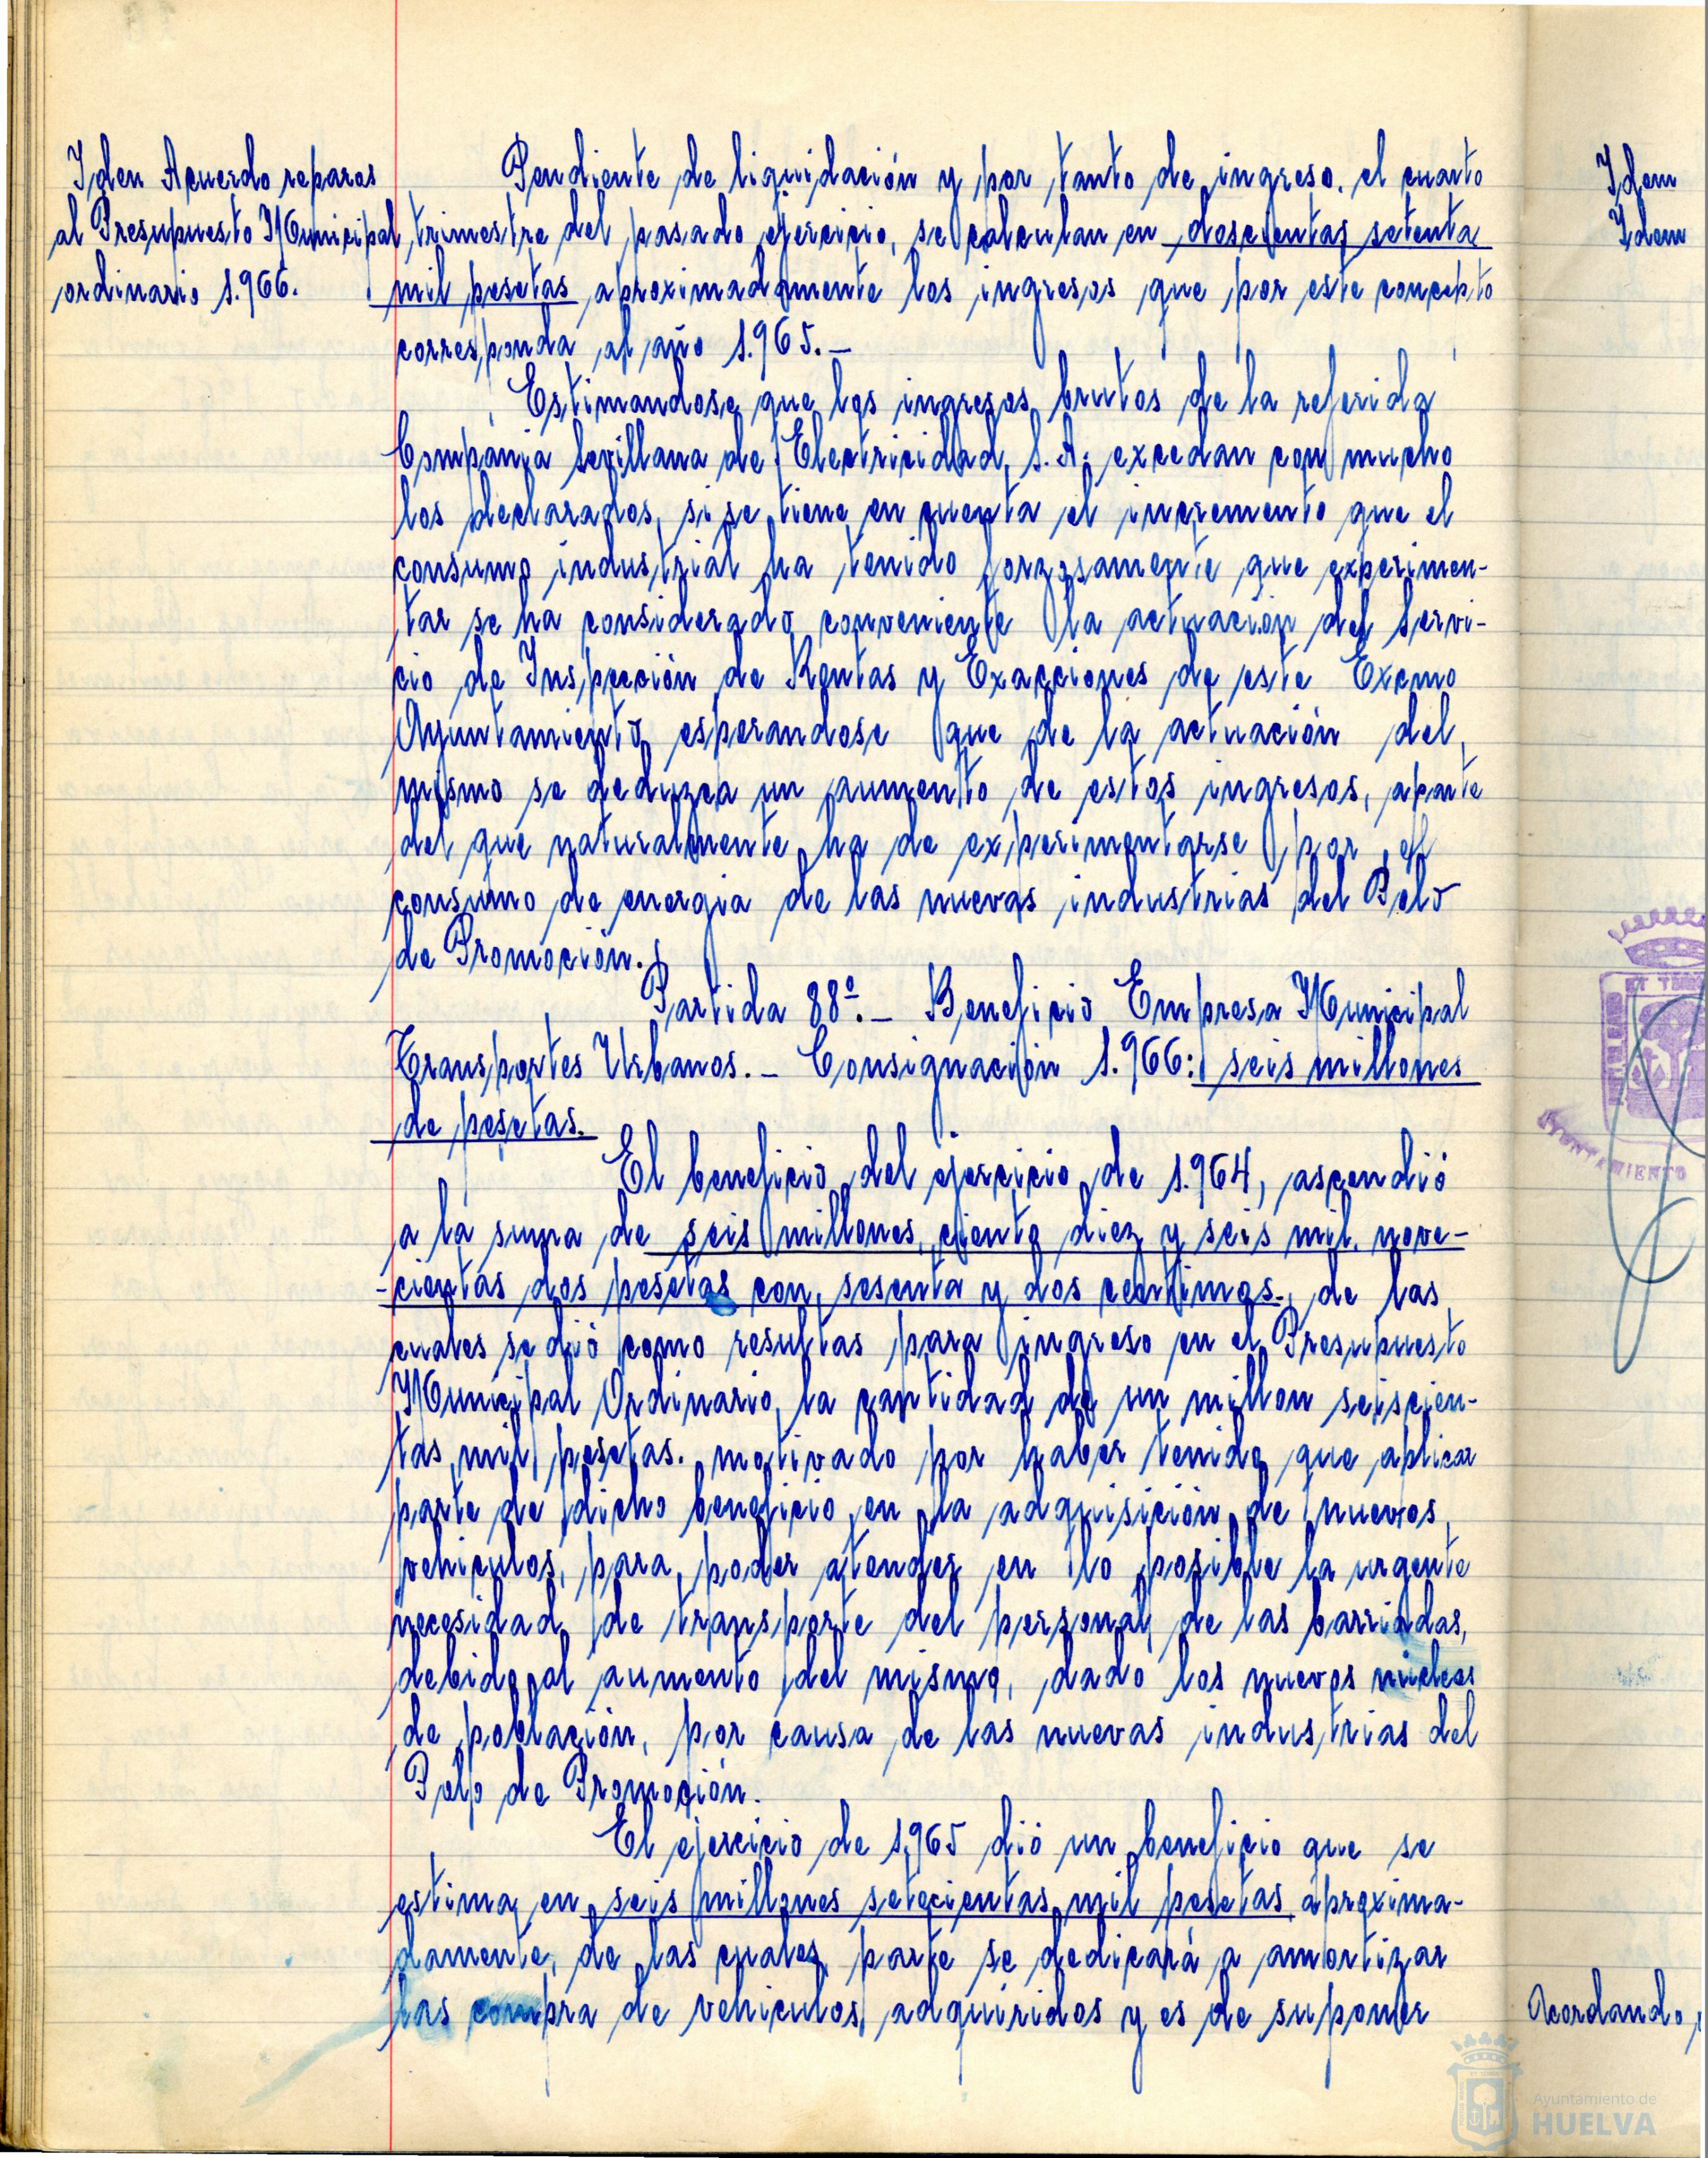 Iden Acuerdo reparos
al Presupuesto Municipal
ordinario 1.966.
Pendiente de liquidación y por tanto de ingreso, el cuarto
trimestre del pasado ejercicio, se calculan en doscientas setenta
mil pesetas aproximadamente los ingresos que por este concepto
corresponda al año 1.965.—
Estimandose que los ingresos brutos de la referida
Compañia Sevillana de Electricidad, S.A. excedan con mucho
los declarados, si se tiene en cuenta el incremento que el
consumo industrial ha tenido forzosamente que experimen-
tar se ha considerado conveniente la actuación del Servi-
cio de Inspección de Rentas y Exacciones de este Excmo
Ayuntamiento esperandose que de la actuación del
mismo se deduzca un aumento de estos ingresos, aparte
del que naturalmente ha de experimentarse por el
consumo de energia de las nuevas industrias del Polo
de Promoción.
Partida 88ª.— Beneficio Empresa Municipal
Transportes Urbanos.— Consignación 1.966: seis millones
de pesetas.
El beneficio del ejercicio de 1.964, ascendió
a la suma de seis millones, ciento diez y seis mil, nove-
-cientas dos pesetas con, sesenta y dos centimos., de las
cuales se dió como resultas para ingreso en el Presupuesto
Municipal Ordinario, la cantidad de un millon seiscien-
tas mil pesetas. motivado por haber tenido que aplicar
parte de dicho beneficio en la adquisición de nuevos
vehiculos, para poder atender en lo posible la urgente
necesidad de transporte del personal de las barriadas,
debido al aumento del mismo, dado los nuevos núcleos
de población, por causa de las nuevas industrias del
Polo de Promoción.
El ejercicio de 1.965 dió un beneficio que se
estima en seis millones setecientas mil pesetas aproxima-
damente, de las cuales parte se dedicará a amortizar
las compra de vehiculos adquiridos y es de suponer
Idem
Idem
AYUNTAMIENTO
Acordando,
Ayuntamiento de
HUELVA